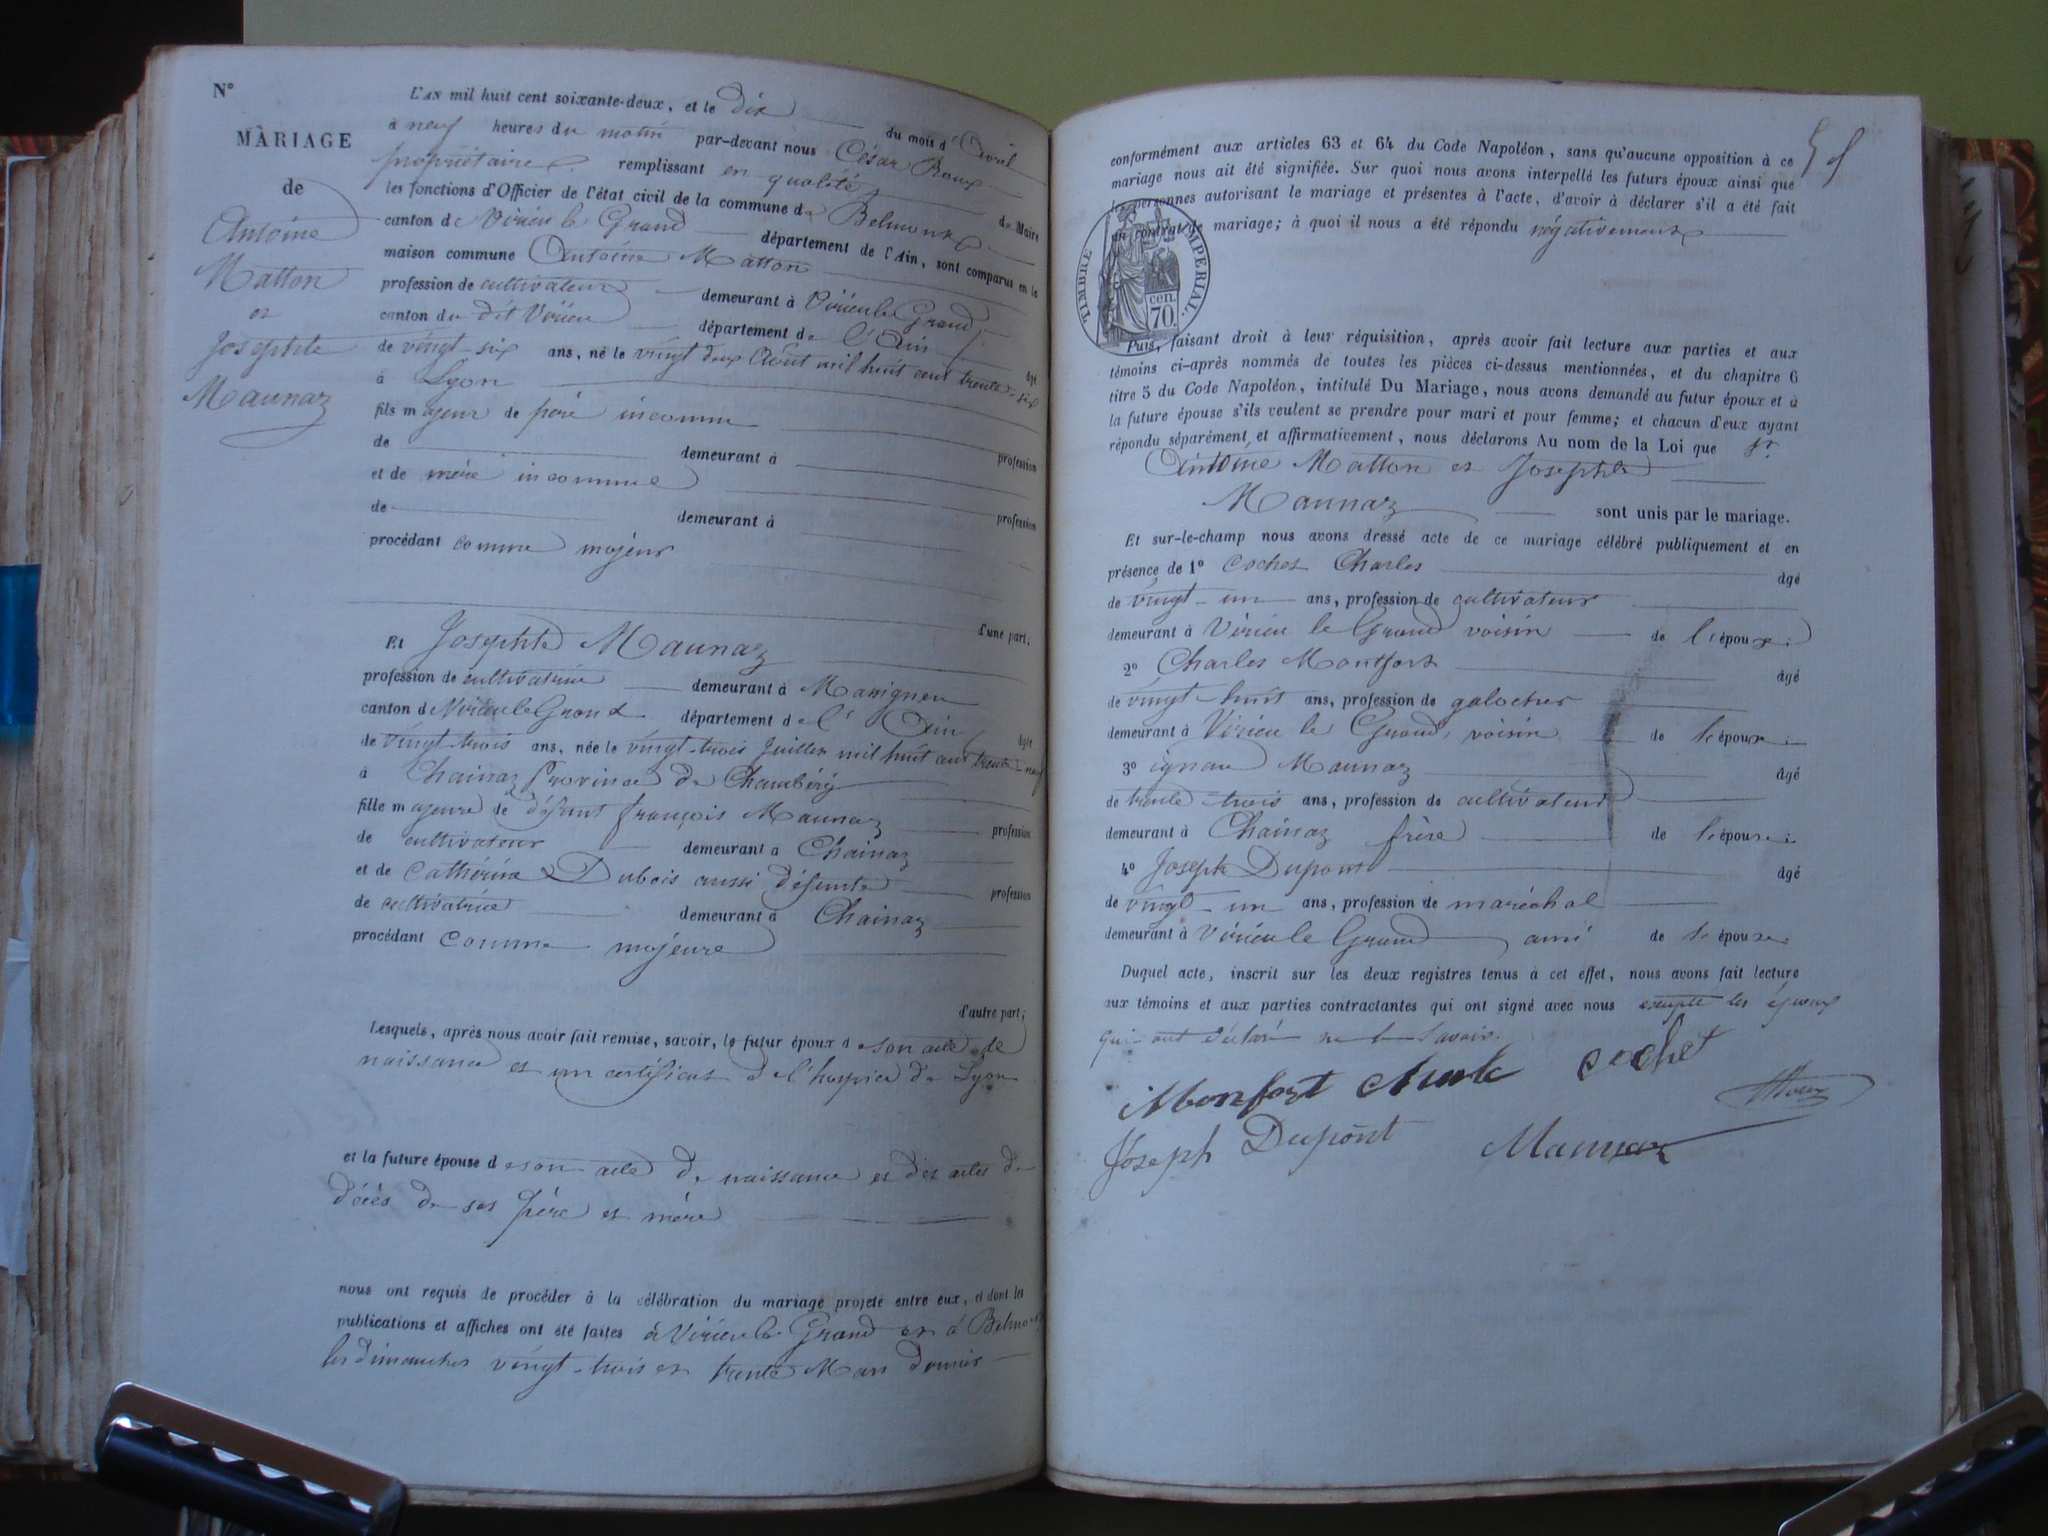 N°
MARIAGE
de
Antoine
Matton
et
Josephte
Maunaz
L'AN mil huit cent soixante-deux, et le dix du mois d'Avril
à neuf heures du matin par-devant nous César Roux
propriétaire remplissant en qualité de Maire
les fonctions d'Officier de l'état civil de la commune de Belmont
canton de Virieu le Grand département de l'Ain, sont comparus en la
maison commune Antoine Matton
profession de cultivateur demeurant à Virieu le Grand
canton du dit Virieu département de l'Ain âgé
de vingt-six ans, né le vingt deux Août mil huit cent trente-six
à Lyon
fils majeur de père inconnu
de demeurant à profession
et de mère inconnue
de demeurant à profession
procédant comme majeur
d'une part.
Et Josephte Maunaz
profession de cultivatrice demeurant à Massignieu
canton de Virieu le Grand département de l'Ain âgée
de vingt-trois ans, née le vingt-trois Juillet mil huit cent trente-neuf
à Chainaz Province de Chambéry
fille majeure de défunt françois Maunaz profession
de cultivateur demeurant à Chainaz
et de Cathérine Dubois aussi défunte profession
de cultivatrice demeurant à Chainaz
procédant comme majeure
d'autre part;
Lesquels, après nous avoir fait remise, savoir, le futur époux de son acte de
naissance et un certificat de l'hospice de Lyon
et la future épouse de son acte de naissance et des actes de
décès de ses père et mère
nous ont requis de procéder à la célébration du mariage projeté entre eux, et dont les
publications et affiches ont été faites à Virieu le Grand et à Belmont
les dimanches vingt-trois et trente Mars dernier
conformément aux articles 63 et 64 du Code Napoléon, sans qu'aucune opposition à ce
mariage nous ait été signifiée. Sur quoi nous avons interpellé les futurs époux ainsi que
les personnes autorisant le mariage et présentes à l'acte, d'avoir à déclarer s'il a été fait
un contrat de mariage; à quoi il nous a été répondu négativement
TIMBRE IMPERIAL.
70 cen.
Puis, faisant droit à leur réquisition, après avoir fait lecture aux parties et aux
témoins ci-après nommés de toutes les pièces ci-dessus mentionnées, et du chapitre 6
titre 5 du Code Napoléon, intitulé Du Mariage, nous avons demandé au futur époux et à
la future épouse s'ils veulent se prendre pour mari et pour femme; et chacun d'eux ayant
répondu séparément et affirmativement, nous déclarons Au nom de la Loi que Sr
Antoine Matton et Josephte
Maunaz sont unis par le mariage.
Et sur-le-champ nous avons dressé acte de ce mariage célébré publiquement et en
présence de 1° Cochet Charles âgé
de vingt-un ans, profession de cultivateur
demeurant à Virieu le Grand voisin de l'époux;
2° Charles Montfort âgé
de vingt-huit ans, profession de galochier
demeurant à Virieu le Grand, voisin de l'époux;
3° ignace Maunaz âgé
de trente-trois ans, profession de cultivateur
demeurant à Chainaz frère de l'épouse;
4° Joseph Dupont âgé
de vingt-un ans, profession de maréchal
demeurant à Virieu le Grand ami de l'époux.
Duquel acte, inscrit sur les deux registres tenus à cet effet, nous avons fait lecture
aux témoins et aux parties contractantes qui ont signé avec nous excepté les époux
qui ont déclaré ne le savoir.
Monfort Charle Cochet
Roux
Joseph Dupont Maunaz